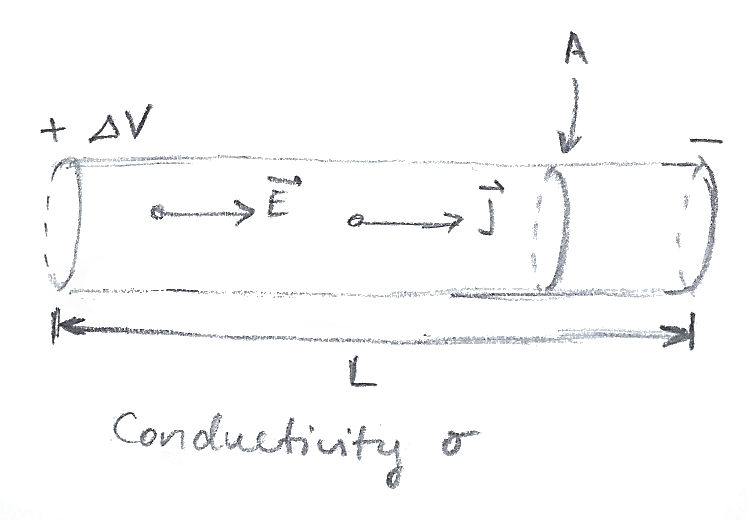 A
+ ΔV −
E⃗ J⃗
L
Conductivity σ